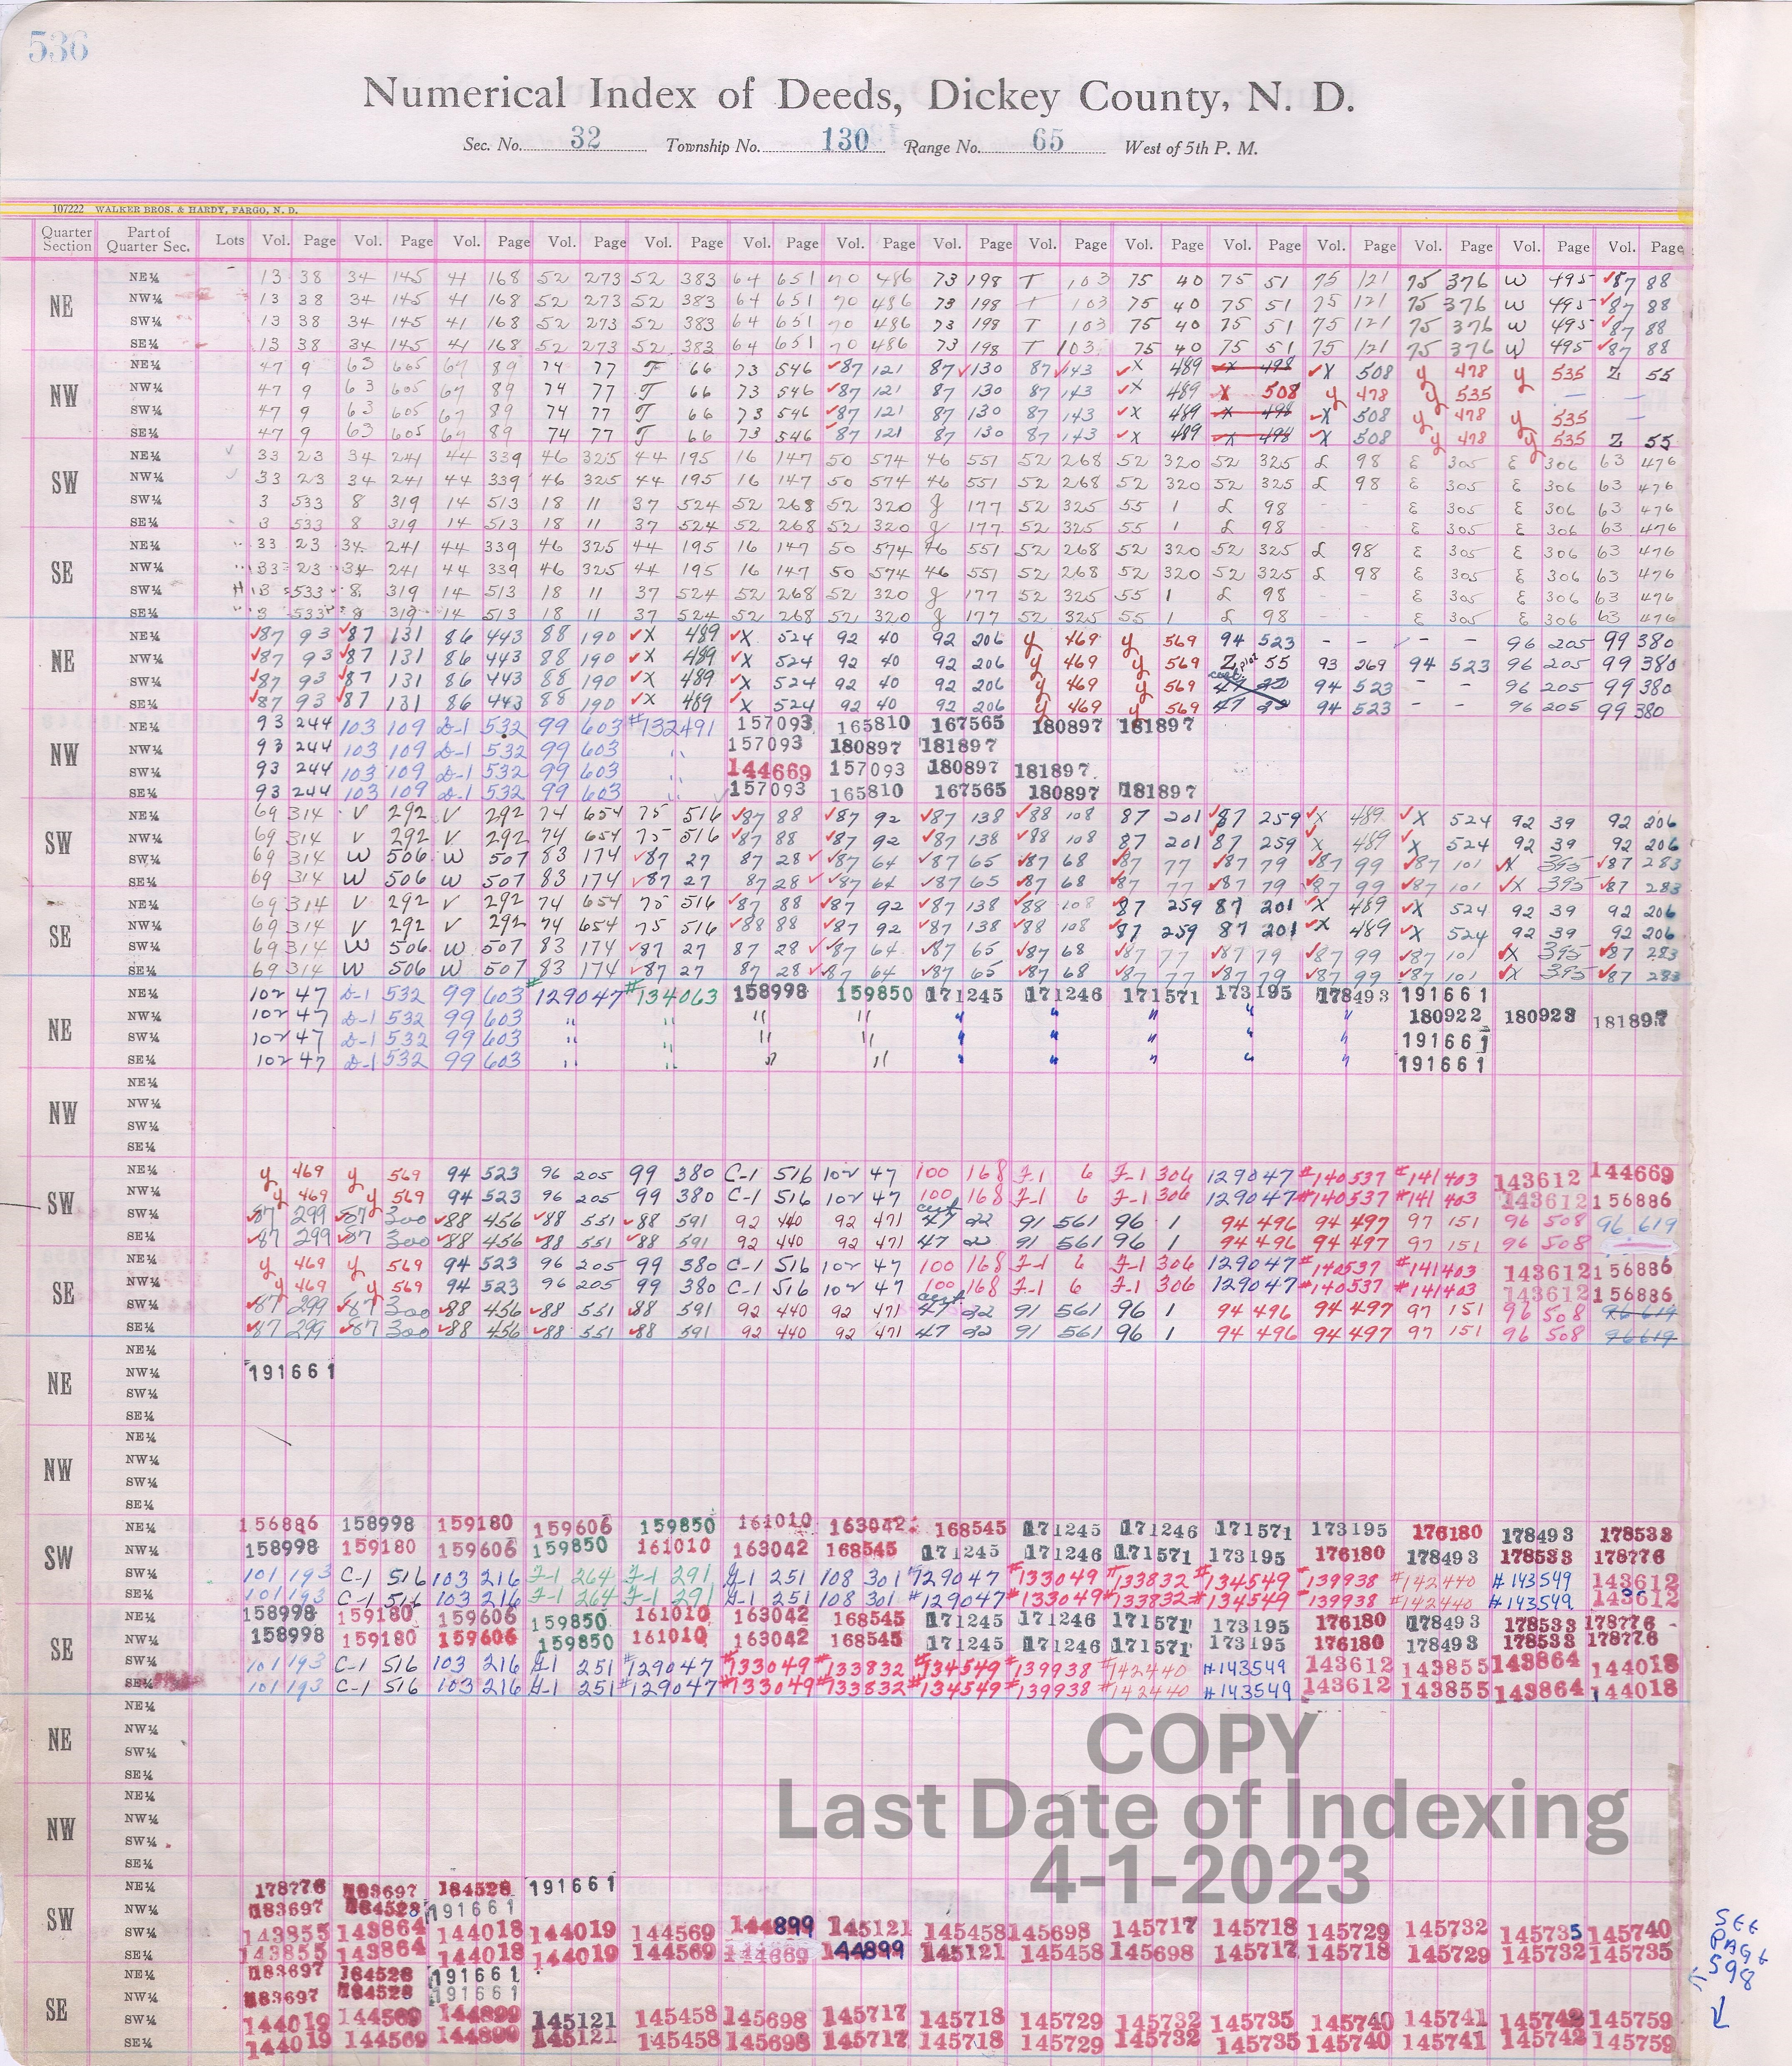 536
Numerical Index of Deeds, Dickey County, N. D.
Sec. No. 32 Township No. 130 Range No. 65 West of 5th P. M.
107222 WALKER BROS. & HARDY, FARGO, N. D.
Quarter Section Part of Quarter Sec. Lots Vol. Page Vol. Page Vol. Page Vol. Page Vol. Page Vol. Page Vol. Page Vol. Page Vol. Page Vol. Page Vol. Page Vol. Page Vol. Page Vol. Page Vol. Page
NE
NE¼ 13 38 34 145 41 168 52 273 52 383 64 651 70 486 73 198 T 103 75 40 75 51 75 121 75 376 W 495 87 88
NW¼ 13 38 34 145 41 168 52 273 52 383 64 651 70 486 73 198 T 103 75 40 75 51 75 121 75 376 W 495 87 88
SW¼ 13 38 34 145 41 168 52 273 52 383 64 651 70 486 73 198 T 103 75 40 75 51 75 121 75 376 W 495 87 88
SE¼ 13 38 34 145 41 168 52 273 52 383 64 651 70 486 73 198 T 103 75 40 75 51 75 121 75 376 W 495 87 88
NW
NE¼ 47 9 63 605 67 89 74 77 T 66 73 546 87 121 87 130 87 143 X 489 X 498 X 508 y 478 y 535 Z 55
NW¼ 47 9 63 605 67 89 74 77 T 66 73 546 87 121 87 130 87 143 X 489 X 508 y 478 y 535 — —
SW¼ 47 9 63 605 67 89 74 77 T 66 73 546 87 121 87 130 87 143 X 489 X 498 X 508 y 478 y 535 —
SE¼ 47 9 63 605 67 89 74 77 T 66 73 546 87 121 87 130 87 143 X 489 X 498 X 508 y 478 y 535 Z 55
SW
NE¼ 33 23 34 241 44 339 46 325 44 195 16 147 50 574 46 551 52 268 52 320 52 325 L 98 E 305 E 306 63 476
NW¼ 33 23 34 241 44 339 46 325 44 195 16 147 50 574 46 551 52 268 52 320 52 325 L 98 E 305 E 306 63 476
SW¼ 3 533 8 319 14 513 18 11 37 524 52 268 52 320 g 177 52 325 55 1 L 98 - - E 305 E 306 63 476
SE¼ 3 533 8 319 14 513 18 11 37 524 52 268 52 320 g 177 52 325 55 1 L 98 - - E 305 E 306 63 476
SE
NE¼ 33 23 34 241 44 339 46 325 44 195 16 147 50 574 46 551 52 268 52 320 52 325 L 98 E 305 E 306 63 476
NW¼ 33 23 34 241 44 339 46 325 44 195 16 147 50 574 46 551 52 268 52 320 52 325 L 98 E 305 E 306 63 476
SW¼ 3 533 8 319 14 513 18 11 37 524 52 268 52 320 g 177 52 325 55 1 L 98 - - E 305 E 306 63 476
SE¼ 3 533 8 319 14 513 18 11 37 524 52 268 52 320 g 177 52 325 55 1 L 98 - - E 305 E 306 63 476
NE
NE¼ 87 93 87 131 86 443 88 190 X 489 X 524 92 40 92 206 y 469 y 569 94 523 - - - - 96 205 99 380
NW¼ 87 93 87 131 86 443 88 190 X 489 X 524 92 40 92 206 y 469 y 569 Z plat 55 93 269 94 523 96 205 99 380
SW¼ 87 93 87 131 86 443 88 190 X 489 X 524 92 40 92 206 y 469 y 569 cert. 47 22 94 523 - - 96 205 99 380
SE¼ 87 93 87 131 86 443 88 190 X 489 X 524 92 40 92 206 y 469 y 569 47 22 94 523 - - 96 205 99 380
NW
NE¼ 93 244 103 109 D-1 532 99 603 #132491 157093 165810 167565 180897 181897
NW¼ 93 244 103 109 D-1 532 99 603 " 157093 180897 181897
SW¼ 93 244 103 109 D-1 532 99 603 " 144669 157093 180897 181897
SE¼ 93 244 103 109 D-1 532 99 603 " 157093 165810 167565 180897 181897
SW
NE¼ 69 314 V 292 V 292 74 654 75 516 87 88 87 92 87 138 88 108 87 201 87 259 X 489 X 524 92 39 92 206
NW¼ 69 314 V 292 V 292 74 654 75 516 87 88 87 92 87 138 88 108 87 201 87 259 X 489 X 524 92 39 92 206
SW¼ 69 314 W 506 W 507 83 174 87 27 87 28 87 64 87 65 87 68 87 77 87 79 87 99 87 101 X 395 87 283
SE¼ 69 314 W 506 W 507 83 174 87 27 87 28 87 64 87 65 87 68 87 77 87 79 87 99 87 101 X 395 87 283
SE
NE¼ 69 314 V 292 V 292 74 654 75 516 87 88 87 92 87 138 88 108 87 259 87 201 X 489 X 524 92 39 92 206
NW¼ 69 314 V 292 V 292 74 654 75 516 88 88 87 92 87 138 88 108 87 259 87 201 X 489 X 524 92 39 92 206
SW¼ 69 314 W 506 W 507 83 174 87 27 87 28 87 64 87 65 87 68 87 77 87 79 87 99 87 101 X 395 87 283
SE¼ 69 314 W 506 W 507 83 174 87 27 87 28 87 64 87 65 87 68 87 77 87 79 87 99 87 101 X 395 87 283
NE
NE¼ 102 47 D-1 532 99 603 #129047 #134063 158998 159850 171245 171246 171571 173195 178493 191661
NW¼ 102 47 D-1 532 99 603 " " " " " " " " " 180922 180923 181897
SW¼ 102 47 D-1 532 99 603 " " " " " " " " " 191661
SE¼ 102 47 D-1 532 99 603 " " " " " " " " " 191661
NW
NE¼
NW¼
SW¼
SE¼
SW
NE¼ y 469 y 569 94 523 96 205 99 380 C-1 516 102 47 100 168 F-1 6 F-1 306 129047 #140537 #141403 143612 144669
NW¼ y 469 y 569 94 523 96 205 99 380 C-1 516 102 47 100 168 F-1 6 F-1 306 129047 #140537 #141403 143612 156886
SW¼ 87 299 87 300 88 456 88 551 88 591 92 440 92 471 cert 47 22 91 561 96 1 94 496 94 497 97 151 96 508 96 619
SE¼ 87 299 87 300 88 456 88 551 88 591 92 440 92 471 47 22 91 561 96 1 94 496 94 497 97 151 96 508
SE
NE¼ y 469 y 569 94 523 96 205 99 380 C-1 516 102 47 100 168 F-1 6 F-1 306 129047 #140537 #141403 143612 156886
NW¼ y 469 y 569 94 523 96 205 99 380 C-1 516 102 47 100 168 F-1 6 F-1 306 129047 #140537 #141403 143612 156886
SW¼ 87 299 87 300 88 456 88 551 88 591 92 440 92 471 cert 47 22 91 561 96 1 94 496 94 497 97 151 96 508 96 619
SE¼ 87 299 87 300 88 456 88 551 88 591 92 440 92 471 47 22 91 561 96 1 94 496 94 497 97 151 96 508 96 619
NE
NE¼
NW¼ 191661
SW¼
SE¼
NW
NE¼
NW¼
SW¼
SE¼
SW
NE¼ 156886 158998 159180 159606 159850 161010 163042 168545 171245 171246 171571 173195 176180 178493 178533
NW¼ 158998 159180 159606 159850 161010 163042 168545 171245 171246 171571 173195 176180 178493 178533 178776
SW¼ 101 193 C-1 516 103 216 F-1 264 F-1 291 G-1 251 108 301 #129047 #133049 #133832 #134549 #139938 #142440 #143549 143612
SE¼ 101 193 C-1 516 103 216 F-1 264 F-1 291 G-1 251 108 301 #129047 #133049 #133832 #134549 #139938 #142440 #143549 143612
SE
NE¼ 158998 159180 159606 159850 161010 163042 168545 171245 171246 171571 173195 176180 178493 178533 178776
NW¼ 158998 159180 159606 159850 161010 163042 168545 171245 171246 171571 173195 176180 178493 178533 178776
SW¼ 101 193 C-1 516 103 216 G-1 251 #129047 #133049 #133832 #134549 #139938 #142440 #143549 143612 143855 143864 144018
SE¼ 101 193 C-1 516 103 216 G-1 251 #129047 #133049 #133832 #134549 #139938 #142440 #143549 143612 143855 143864 144018
NE
NE¼
NW¼
SW¼
SE¼
COPY
Last Date of Indexing
4-1-2023
NW
NE¼
NW¼
SW¼
SE¼
SW
NE¼ 178776 183697 184528 191661
NW¼ 183697 184528 191661
SW¼ 143855 143864 144018 144019 144569 144899 145121 145458 145698 145717 145718 145729 145732 145735 145740
SE¼ 143855 143864 144018 144019 144569 144669 144899 145121 145458 145698 145717 145718 145729 145732 145735
SE
NE¼ 183697 184528 191661
NW¼ 183697 184528 191661
SW¼ 144019 144569 144899 145121 145458 145698 145717 145718 145729 145732 145735 145740 145741 145742 145759
SE¼ 144019 144569 144899 145121 145458 145698 145717 145718 145729 145732 145735 145740 145741 145742 145759
SEE
PAGE
598